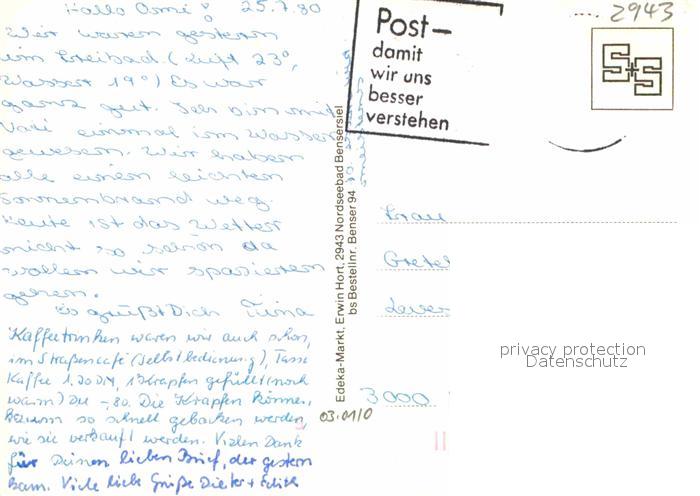 Hallo Omi! 25.7.80
Wir waren gestern
im Freibad. (Luft 23°,
Wasser 19°) Es war
ganz gut. Ich bin mit
Vati einmal im Wasser
gewesen. Wir haben
alle einen leichten
Sonnenbrand weg.
Heute ist das Wetter
nicht so schön da
wollen wir spazieren
gehen.
Es grüßt Dich Tina
Kaffeetrinken waren wir auch schon,
im Straßencafé (Selbstbedienung), Tasse
Kaffee 1,20 DM, 1 Krapfen gefüllt (noch
warm) zu -,80. Die Krapfen können
so schnell gebacken werden,
wie sie verkauft werden. Vielen Dank
für Deinen lieben Brief, der gestern
kam. Viele liebe Grüße Dieter + Edith
Edeka-Markt, Erwin Hort, 2943 Nordseebad Bensersiel
bs Bestellnr. Benser 94
Post–
damit
wir uns
besser
verstehen
2943
S+S
Frau
Gretel
3000
03.01/0
privacy protection
Datenschutz